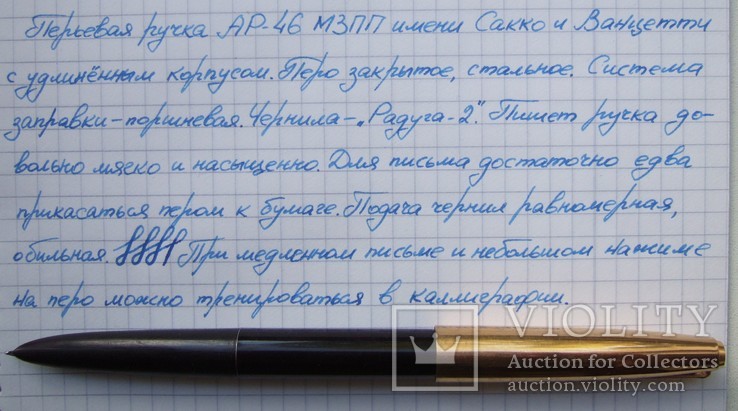 Перьевая ручка АР-46 МЗПП имени Сакко и Ванцетти
с удлинённым корпусом. Перо закрытое, стальное. Система
заправки-поршневая. Чернила-„Радуга-2". Пишет ручка до-
вольно мягко и насыщенно. Для письма достаточно едва
прикасаться пером к бумаге. Подача чернил равномерная,
обильная. При медленном письме и небольшом нажиме
на перо можно тренироваться в каллиграфии.
VIOLITY
Auction for Collectors
auction.violity.com